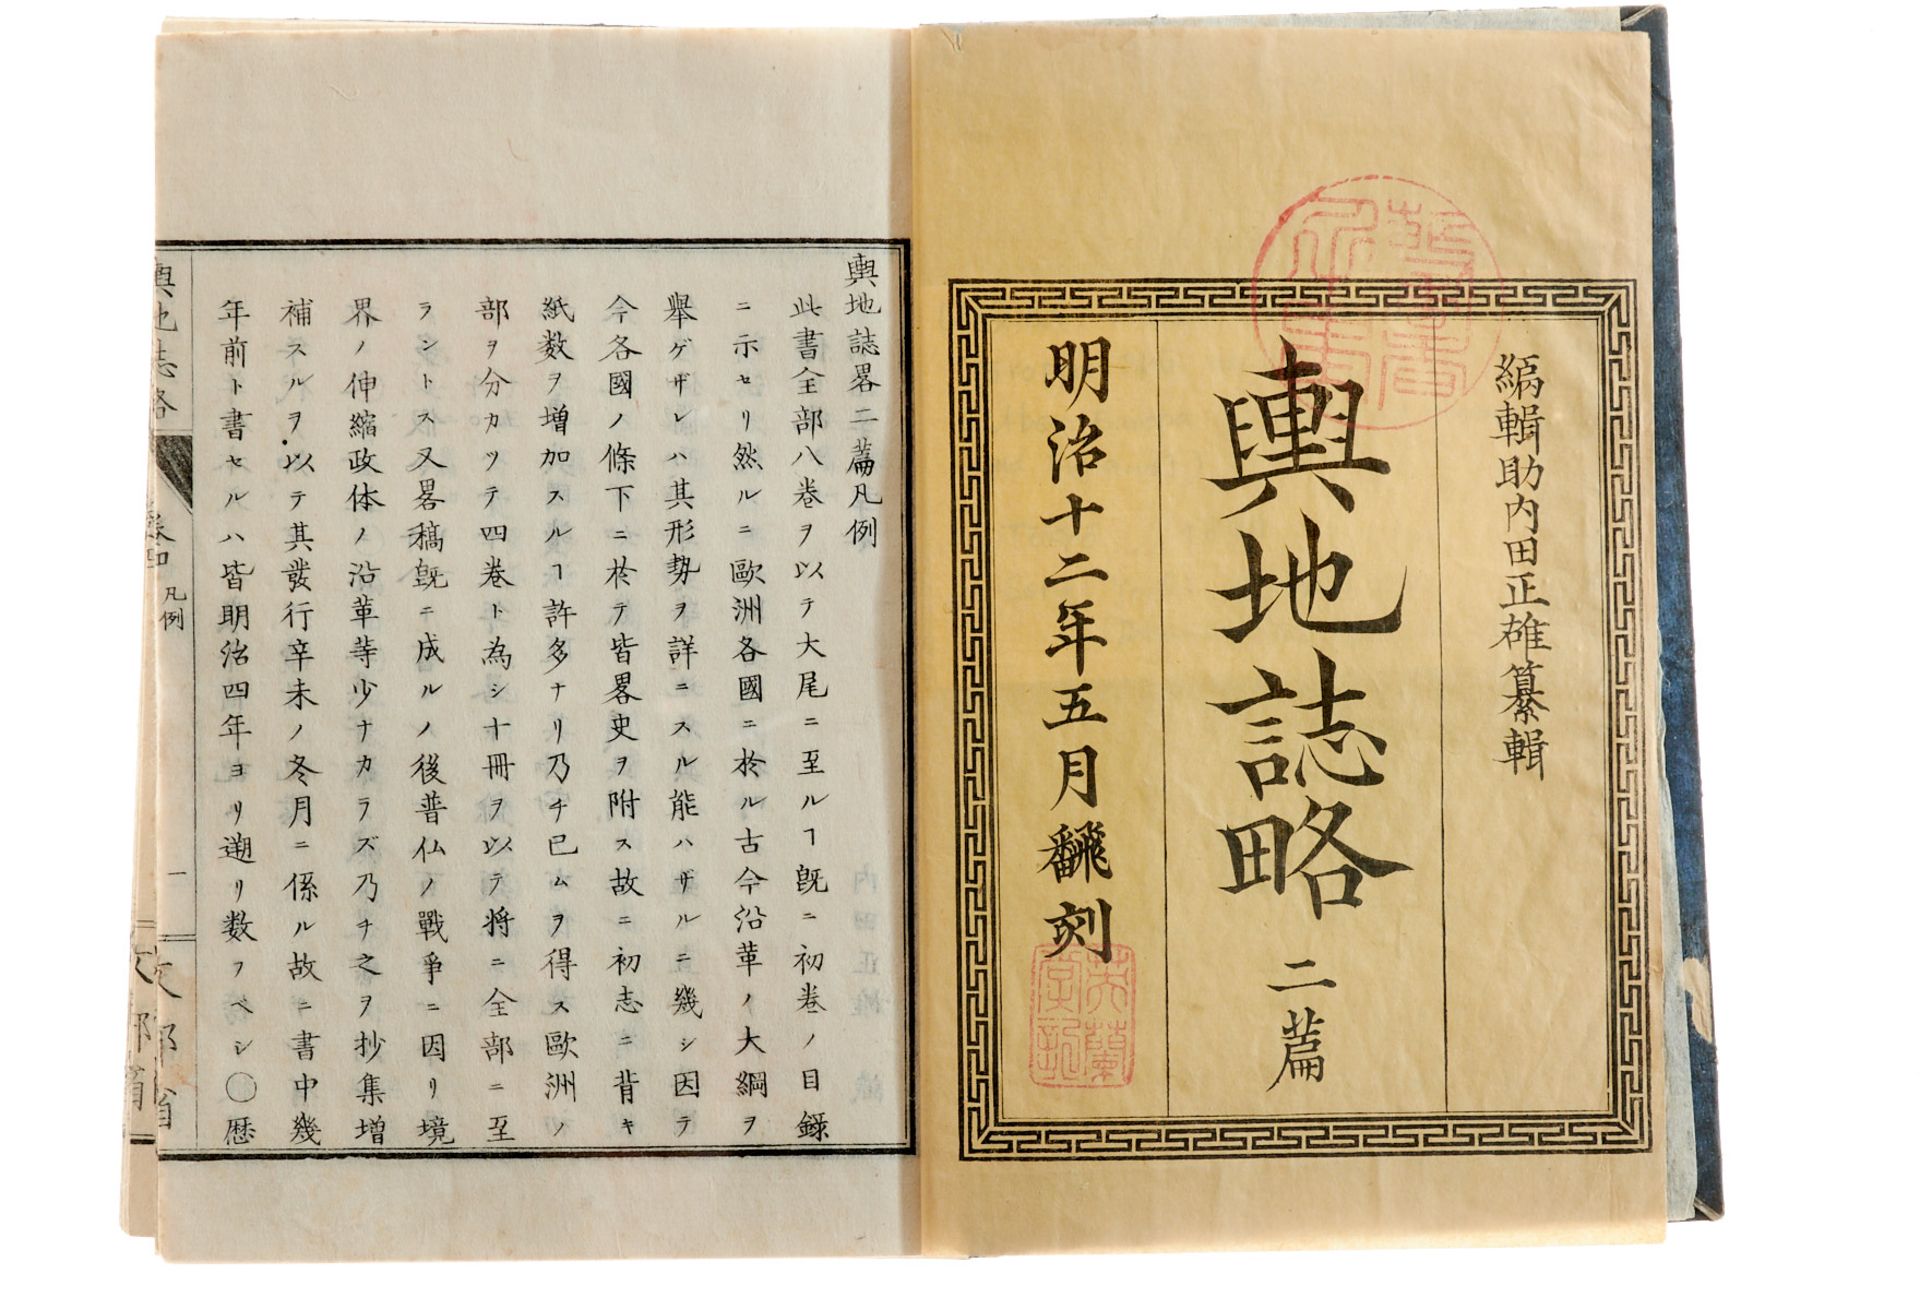 編輯助内田正雄纂輯
輿地誌略 二篇
明治十二年五月飜刻
輿地誌畧二篇凡例
此書全部八巻ヲ以テ大尾ニ至ルヿ既ニ初巻ノ目録
ニ示セリ然ルニ歐洲各國ニ於ル古今沿革ノ大綱ヲ
舉ゲザレハ其形勢ヲ詳ニスル能ハザルニ幾シ因テ
今各國ノ條下ニ於テ皆畧史ヲ附ス故ニ初志ニ背キ
紙数ヲ増加スルヿ許多ナリ乃チ已ムヲ得ス歐洲ノ
部ヲ分カツテ四巻ト為シ十冊ヲ以テ将ニ全部ニ至
ラントス又畧稿既ニ成ルノ後普仏ノ戰爭ニ因リ境
界ノ伸縮政体ノ沿革等少ナカラズ乃チ之ヲ抄集増
補スルヲ以テ其發行辛未ノ冬月ニ係ル故ニ書中幾
年前ト書セルハ皆明治四年ヨリ遡リ数フベシ〇歴
輿地誌略 巻四 凡例 一 文部省